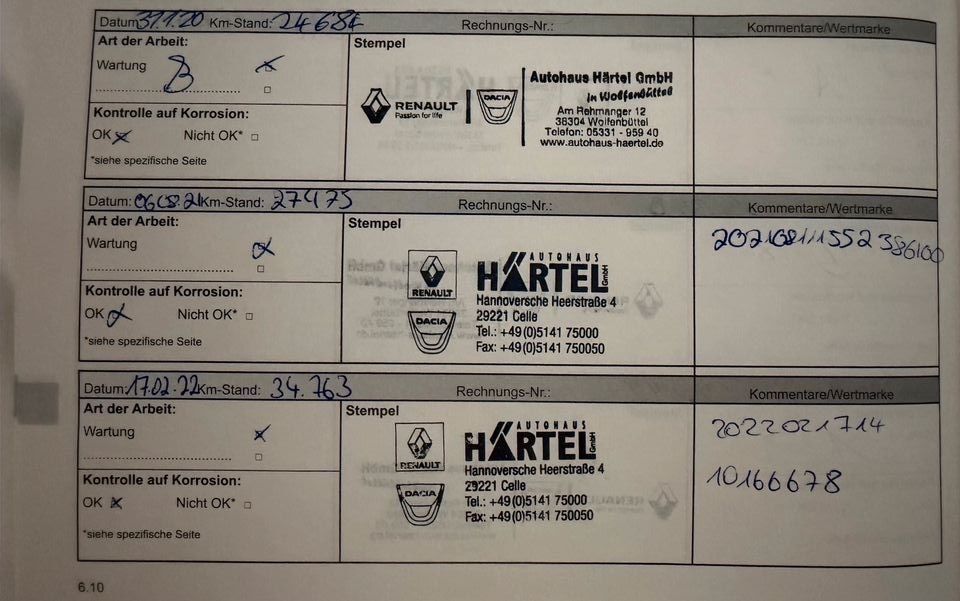 Datum: 31.1.20 Km-Stand: 24684 Rechnungs-Nr.: Kommentare/Wertmarke
Art der Arbeit:
Wartung B
Kontrolle auf Korrosion:
OK Nicht OK*
*siehe spezifische Seite
Stempel
RENAULT
Passion for life
DACIA
Autohaus Härtel GmbH
in Wolfenbüttel
Am Rehmanger 12
38304 Wolfenbüttel
Telefon: 05331 - 959 40
www.autohaus-haertel.de
Datum: 06.08.21 Km-Stand: 27475 Rechnungs-Nr.: Kommentare/Wertmarke
Art der Arbeit:
Wartung
Kontrolle auf Korrosion:
OK Nicht OK*
*siehe spezifische Seite
Stempel
RENAULT
DACIA
AUTOHAUS
HÄRTEL GmbH
Hannoversche Heerstraße 4
29221 Celle
Tel.: +49(0)5141 75000
Fax: +49(0)5141 750050
202108111552386100
Datum: 17.02.22 Km-Stand: 34.763 Rechnungs-Nr.: Kommentare/Wertmarke
Art der Arbeit:
Wartung
Kontrolle auf Korrosion:
OK Nicht OK*
*siehe spezifische Seite
Stempel
RENAULT
DACIA
AUTOHAUS
HÄRTEL GmbH
Hannoversche Heerstraße 4
29221 Celle
Tel.: +49(0)5141 75000
Fax: +49(0)5141 750050
2022021714
10166678
6.10